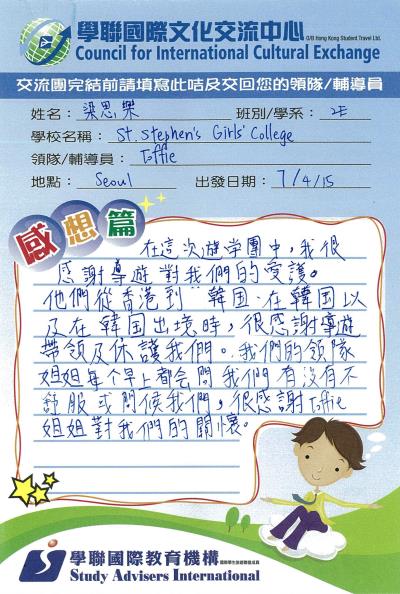 學聯國際文化交流中心 O/B Hong Kong Student Travel Ltd.
Council for International Cultural Exchange
交流團完結前請填寫此咭及交回您的領隊/輔導員
姓名：梁思樂 班別/學系：2E
學校名稱：St. Stephen's Girls' College
領隊/輔導員：Toffie
地點：Seoul 出發日期：7/4/15
感想篇
在這次遊学團中，我很
感謝導遊對我們的愛護。
他們從香港到韓国、在韓国以
及在韓国出境時，很感謝導遊
帶領及保護我們。我們的領隊
姐姐每个早上都会問我們有沒有不
舒服或問候我們，很感謝Toffie
姐姐對我們的關懷。
學聯國際教育機構
Study Advisers International